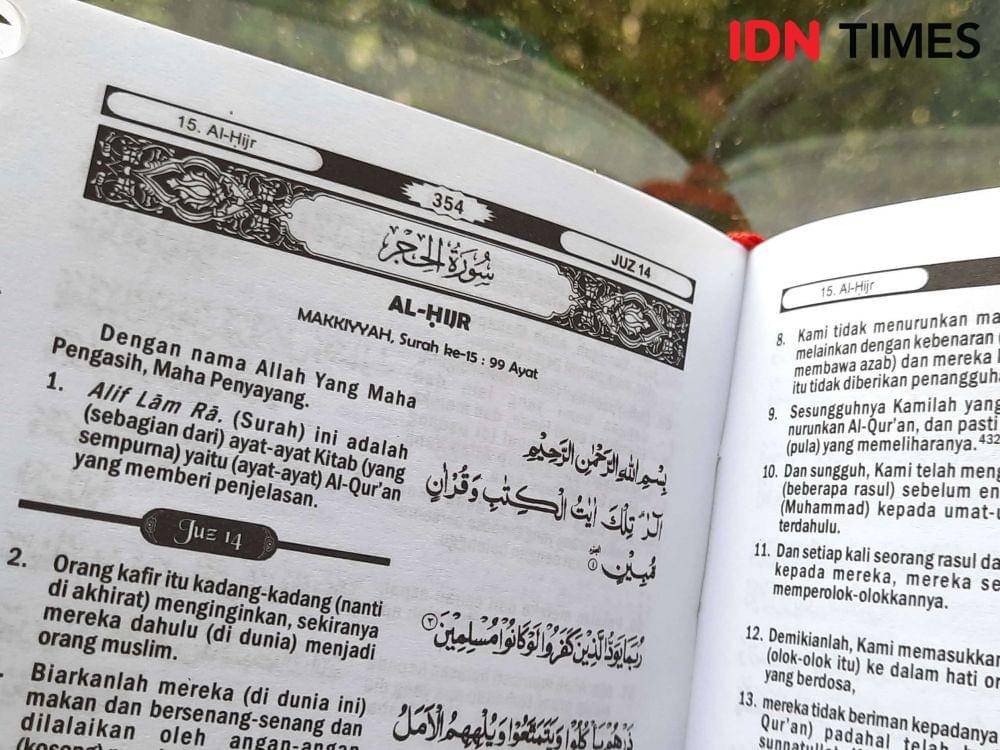 IDN TIMES
15. Al-Ḥijr
354
JUZ 14
سُورَةُ الْحِجْرِ
AL-ḤIJR
MAKKIYYAH, Surah ke-15 : 99 Ayat
Dengan nama Allah Yang Maha
Pengasih, Maha Penyayang.
بِسْمِ اللّٰهِ الرَّحْمٰنِ الرَّحِيْمِ
1. Alif Lām Rā. (Surah) ini adalah
(sebagian dari) ayat-ayat Kitab (yang
sempurna) yaitu (ayat-ayat) Al-Qur'an
yang memberi penjelasan.
الۤرٰ ۗ تِلْكَ اٰيٰتُ الْكِتٰبِ وَقُرْاٰنٍ
مُّبِيْنٍ ١
Juz 14
2. Orang kafir itu kadang-kadang (nanti
di akhirat) menginginkan, sekiranya
mereka dahulu (di dunia) menjadi
orang muslim.
رُبَمَا يَوَدُّ الَّذِيْنَ كَفَرُوْا لَوْ كَانُوْا مُسْلِمِيْنَ ٢
Biarkanlah mereka (di dunia ini)
makan dan bersenang-senang dan
dilalaikan oleh angan-angan
(kosong)
ذَرْهُمْ يَأْكُلُوْا وَيَتَمَتَّعُوْا وَيُلْهِهِمُ الْاَمَلُ
15. Al-Ḥijr
8. Kami tidak menurunkan ma
melainkan dengan kebenaran
membawa azab) dan mereka
itu tidak diberikan penangguha
9. Sesungguhnya Kamilah yang
nurunkan Al-Qur'an, dan pasti
(pula) yang memeliharanya.432
10. Dan sungguh, Kami telah meng
(beberapa rasul) sebelum en
(Muhammad) kepada umat-u
terdahulu.
11. Dan setiap kali seorang rasul da
kepada mereka, mereka se
memperolok-olokkannya.
12. Demikianlah, Kami memasukkan
(olok-olok itu) ke dalam hati or
yang berdosa,
13. mereka tidak beriman kepadanya
Qur'an) padahal te
sunnatullah